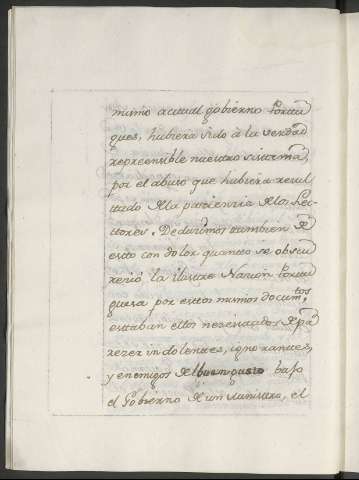 mismo actual gobierno Portu
gues, hubiera sido à la verdad
reprensible nuestro sistema,
por el abuso que hubiera resul
tado de la paciencia de los Lec
tores. Deducimos tambien de
esto con dolor quanto se obscu
reció la ilustre Nacion Portu
guesa por estos mismos docum.tos
estaban ellos necesitados de pa
rezer indolentes, ignorantes,
y enemigos del buen gusto baso
el Gobierno de un Ministro, el